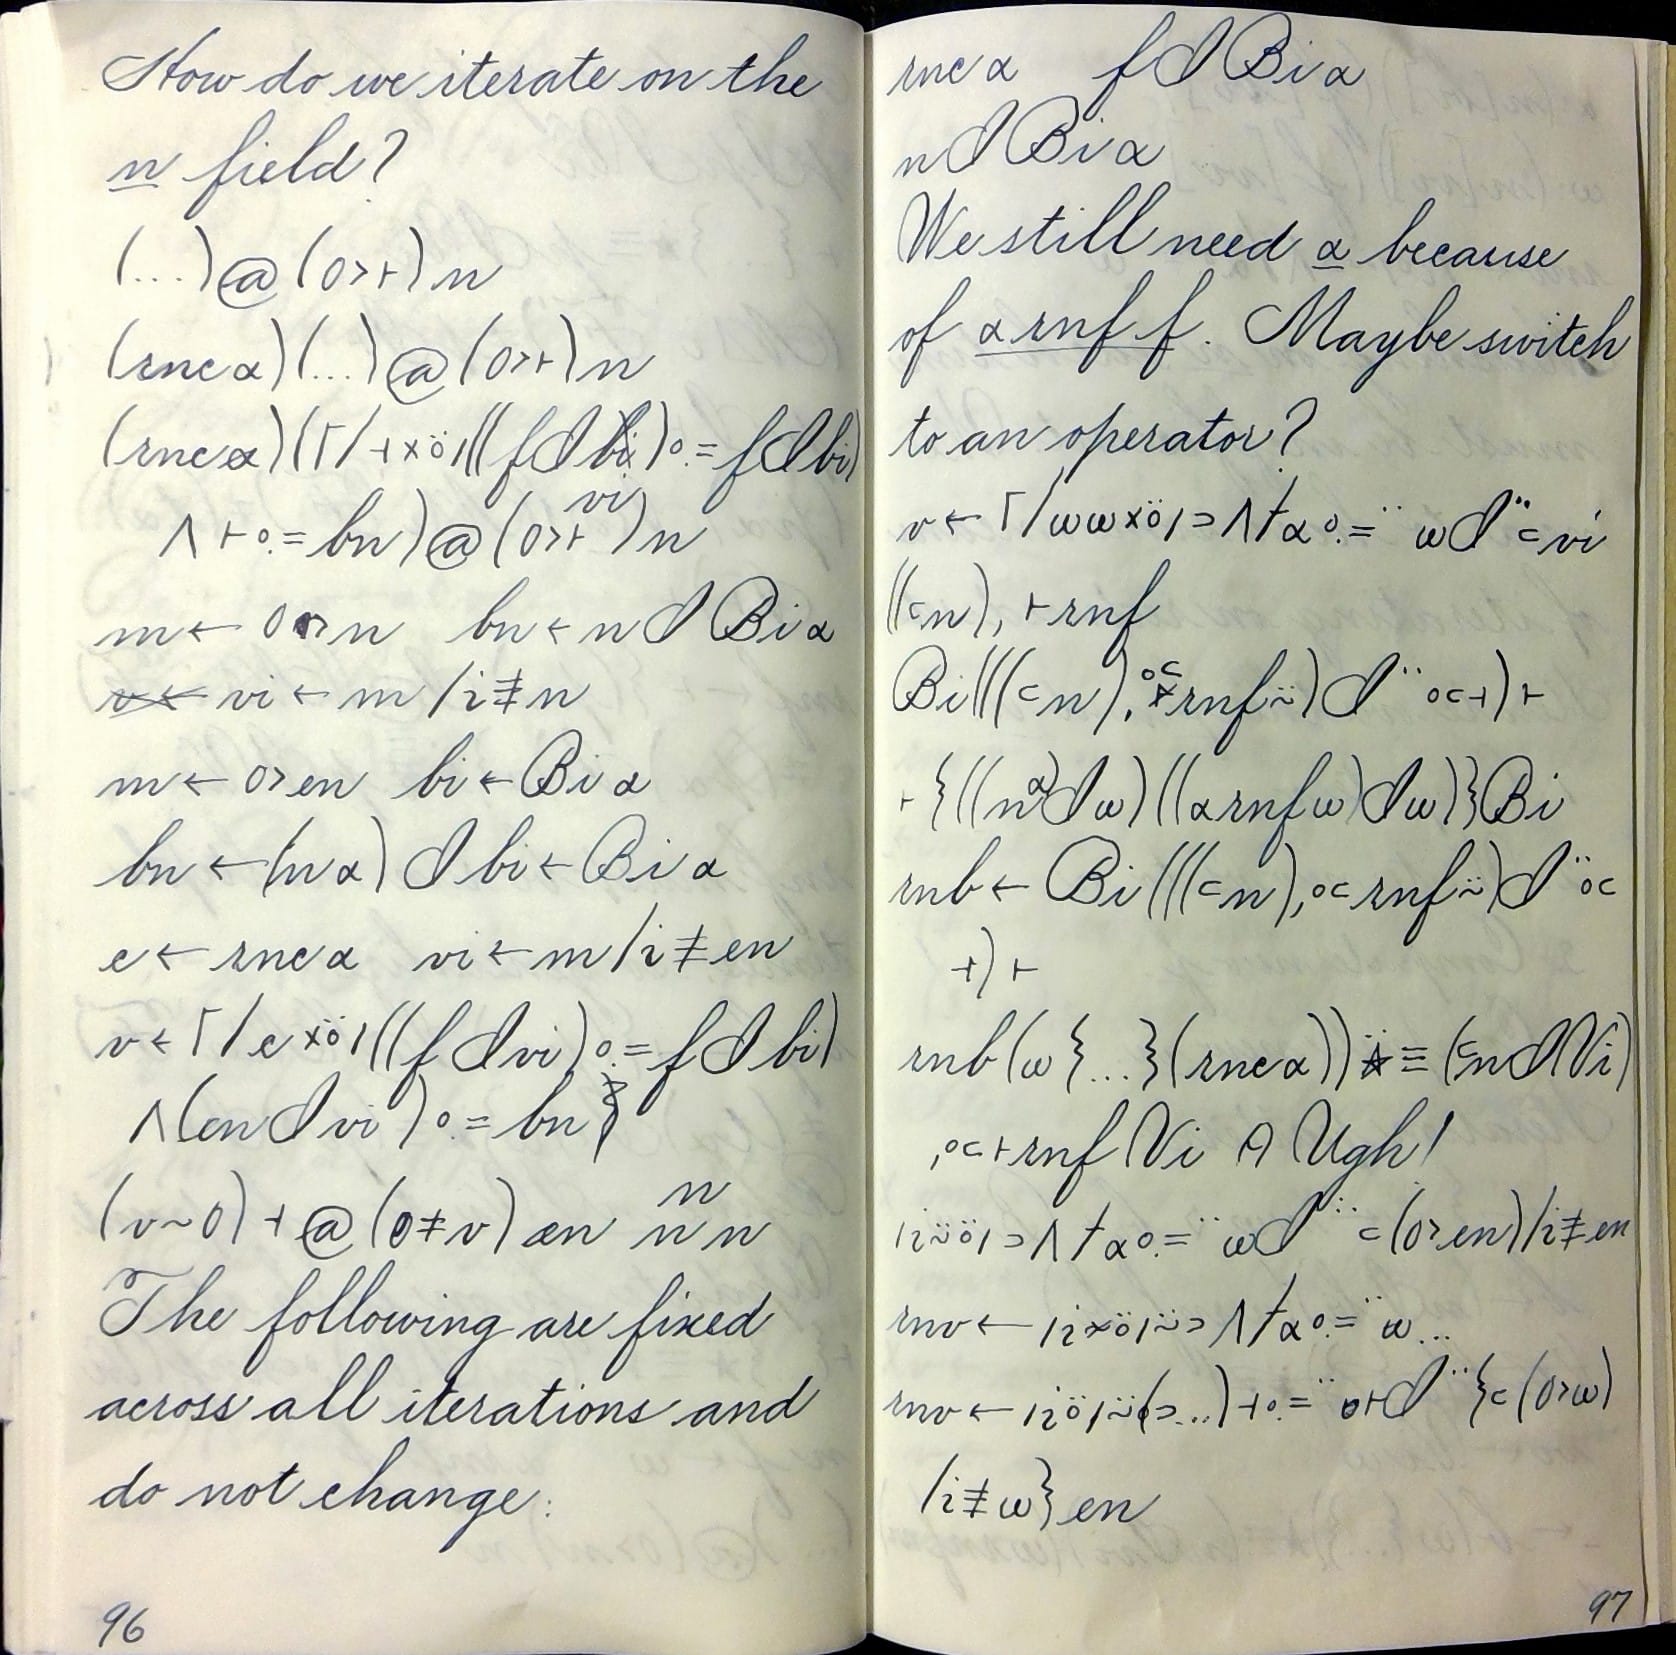 How do we iterate on the
n field?
(...)@(0>⊢)n
(rnc⍺)(...)@(0>⊢)n
(rnc⍺)(⌈/⊣×⍤1((f⌷bi)∘.=f⌷bi)
vi
∧⊢∘.=bn)@(0>⊢)n
m←0>n bn←n⌷Bi⍺
vi←m/i≢n
m←0>en bi←Bi⍺
bn←(n⍺)⌷bi←Bi⍺
e←rnc⍺ vi←m/i≢en
v←⌈/e×⍤1((f⌷vi)∘.=f⌷bi)
∧(en⌷vi)∘.=bn
n
(v~0)⊣@(0≠v)en n n
The following are fixed
across all iterations and
do not change:
96
rnc⍺ f⌷Bi⍺
n⌷Bi⍺
We still need ⍺ because
of ⍺ rnf f. Maybe switch
to an operator?
v←⌈/⍵⍵×⍤1⊃∧⌿⍺∘.=¨⍵⌷¨⊂vi
((⊂n),⊢rnf
∘⊂
Bi(((⊂n),rnf⍨)⌷¨∘⊂⊣)⊢
⊢{((n⍺)⌷⍵)((⍺rnf⍵)⌷⍵)}Bi
rnb←Bi(((⊂n),∘⊂rnf⍨)⌷¨∘⊂
⊣)⊢
rnb(⍵{...}(rnc⍺))⍣≡(⊂n⌷Vi)
,∘⊂⊣rnf Vi ⍝ Ugh!
|i⍨⍤1⊃∧⌿⍺∘.=¨⍵⌷¨⊂(0>en)/i≢en
rnv←|i×⍤1⍨⊃∧⌿⍺∘.=¨⍵...
rnv←|i⍤1⍨(⊃...)⊣∘.=¨⊢⌷¨{⊂(0>⍵)
/i≢⍵}en
97